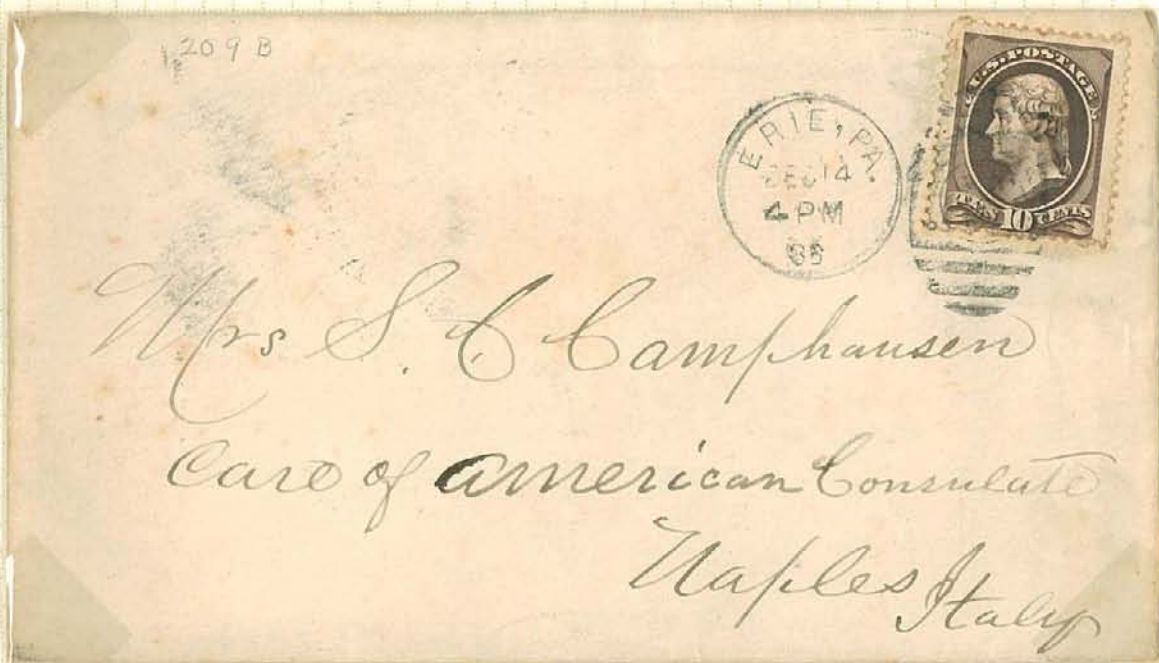 209B
U.S. POSTAGE
TEN 10 CENTS
ERIE, PA.
DEC 14
4 PM
86
Mrs S. C Camphausen
Care of American Consulate
Naples
Italy